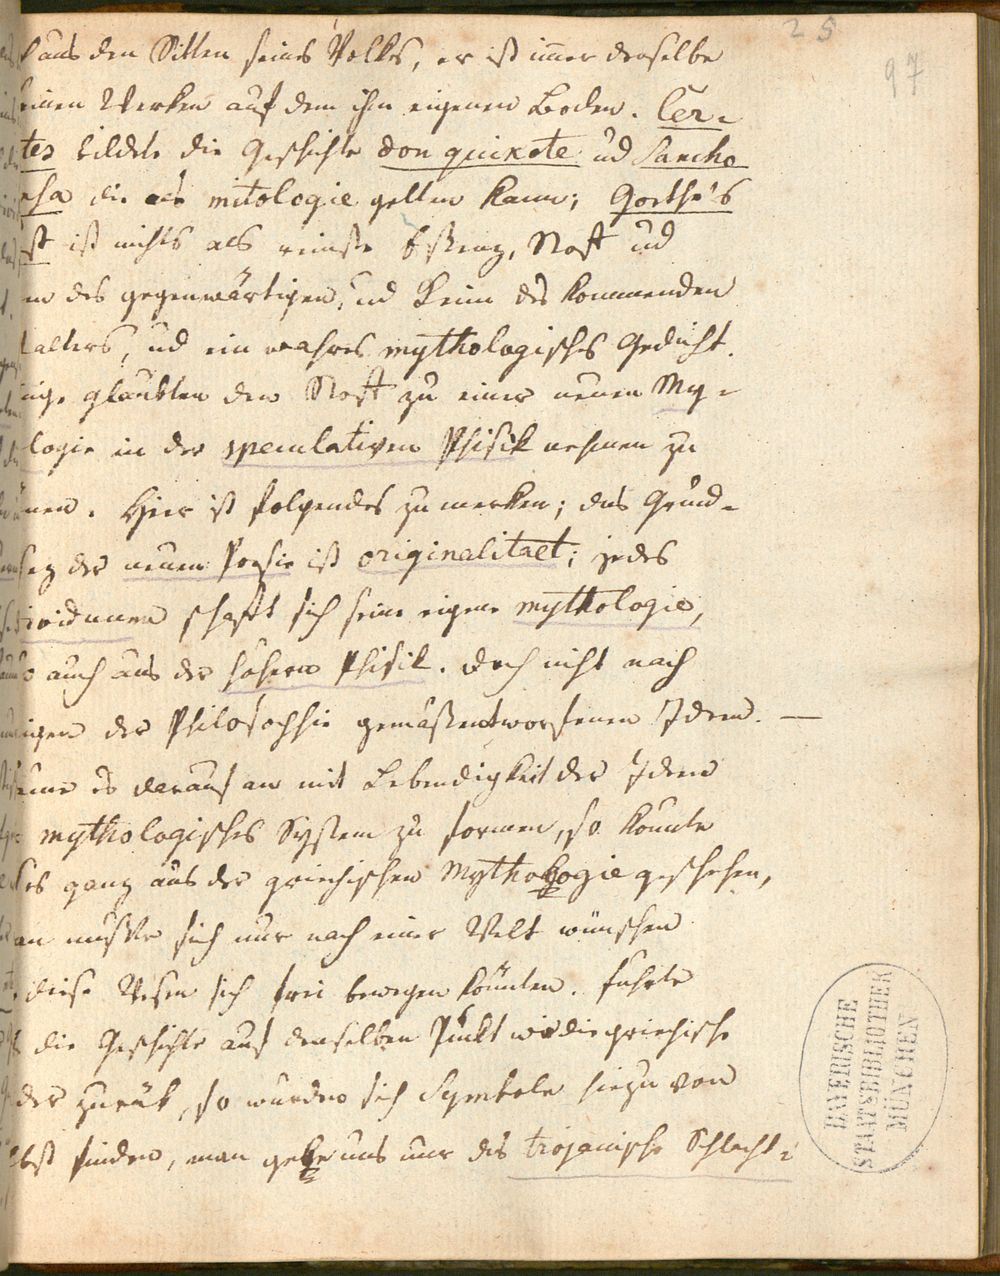 25
97
aus den Sitten seines Volks, er ist imer derselbe
seinen Werken auf dem ihm eigenen Boden. Cer-
tes bildete die Geschichte don quixote ud Sancho
nsa die als mitologie gelten kann; Goethe's
st ist nichts als reinste Essenz, Stoff ud
m des gegenwärtigen, ud Keim des kommenden
talters, ud ein wahres mythologisches Gedicht.
nige glaubten den Stoff zu einer neuen My-
logie in der speculativen Phisik nehmen zu
nen. Hier ist folgendes zu merken; das Grund-
sez der neuen Poesie ist originalitaet; jedes
ividuum schafft sich seine eigene mythologie,
o auch aus der höhern Phisik. doch nicht nach
igen der Philosophie gemäßentworfenen Ideen. —
eme es darauf an mit Lebendigkeit der Ideen
mythologisches System zu formen, so könnte
ses ganz aus der griechischen Mythologie geschehen,
an müßte sich nur nach einer Welt wünschen
diese Wesen sich frei bewegen könnten. führte
die Geschichte auf denselben Punkt wie die griechische
der zurük, so würden sich Symbole hiezu von
lbst finden, man gebe uns nur die trojanische Schlacht:
BAYERISCHE
STAATSBIBLIOTHEK
MÜNCHEN